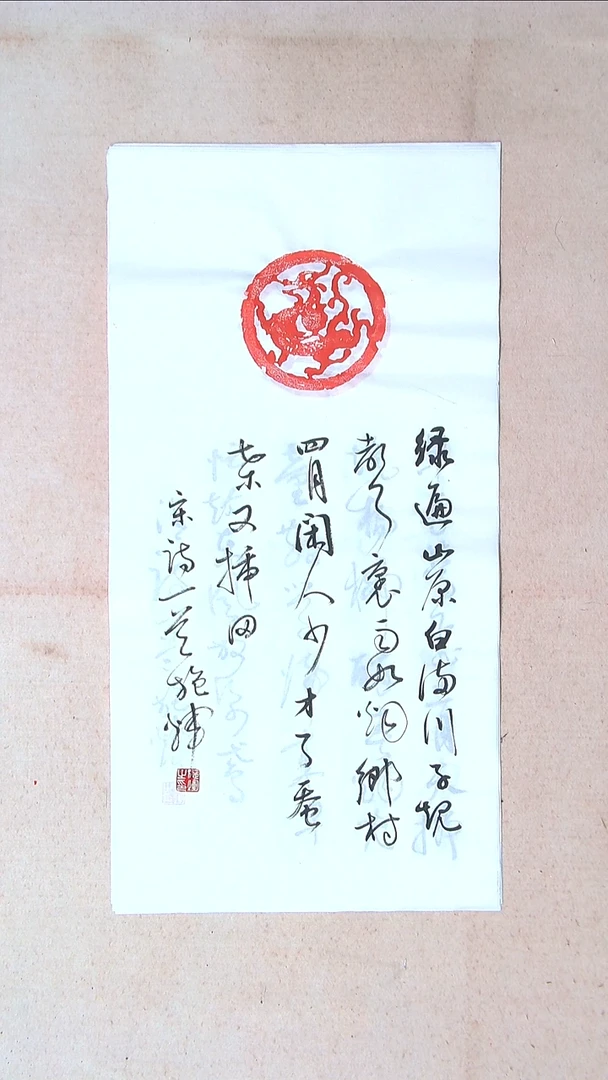 绿遍山原白满川子规
声里雨如烟乡村
四月闲人少才了蚕
桑又插田
宋诗一首